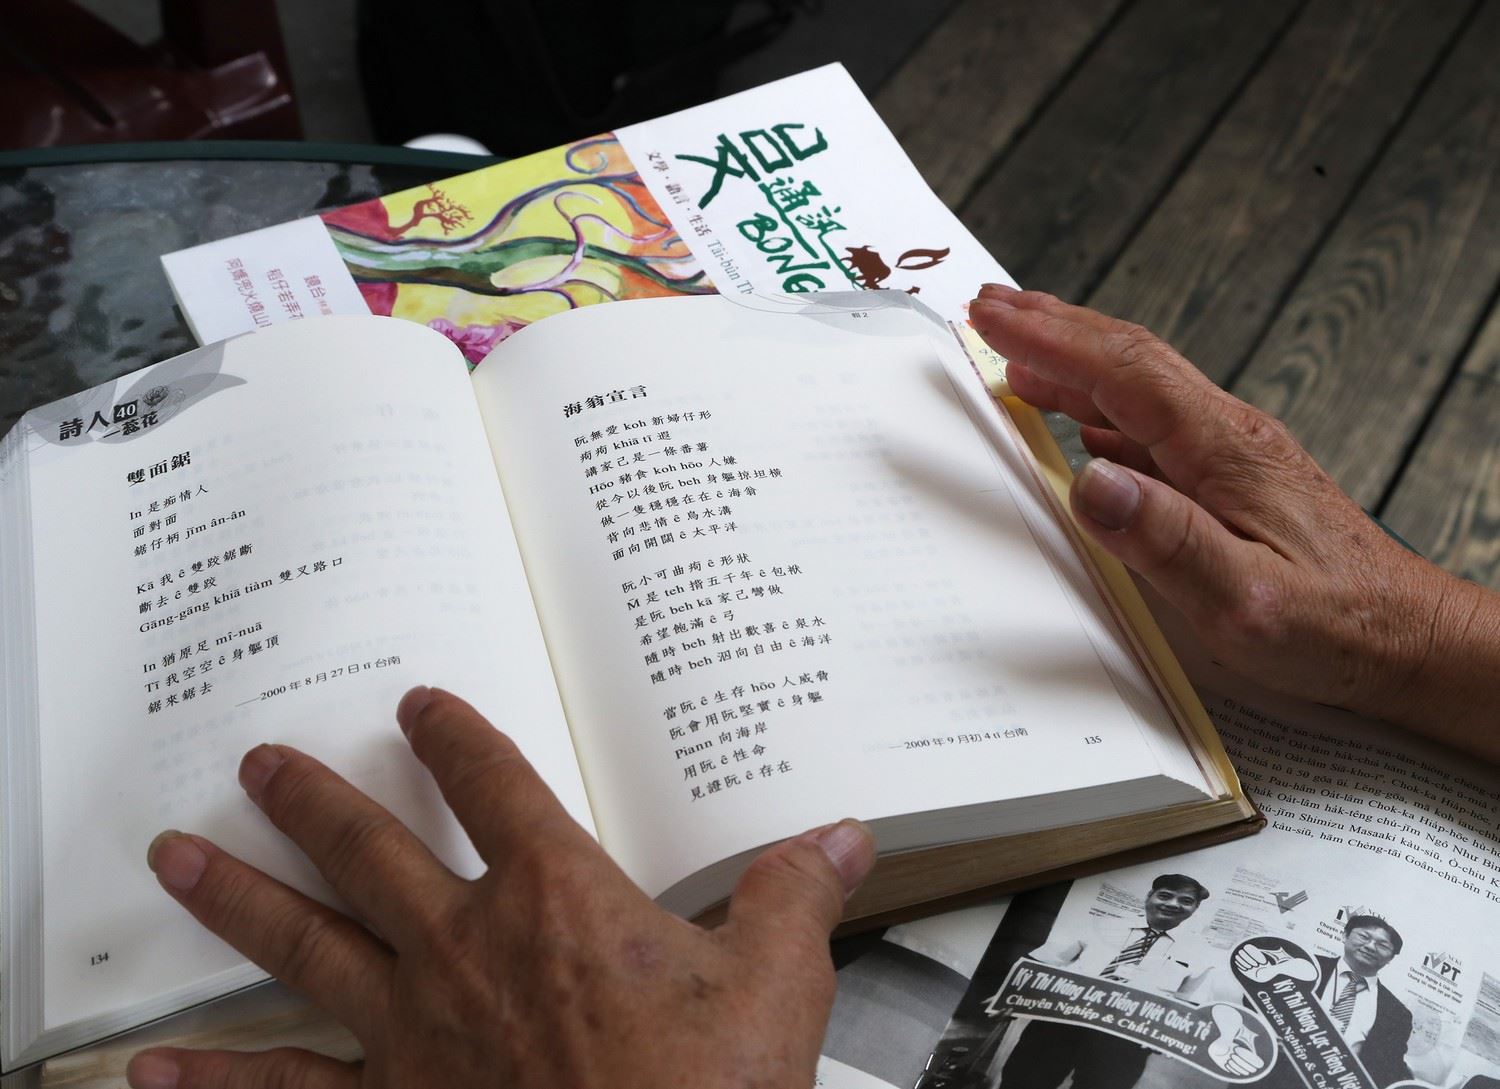 詩人40
一蕊花
雙面鋸
In 是痴情人
面對面
鋸仔柄 jīm ân-ân
Kā 我 ê 雙跤鋸斷
斷去 ê 雙跤
Gāng-gāng khiā tiàm 雙叉路口
In 猶原足 mî-nuā
Tī 我空空 ê 身軀頂
鋸來鋸去
──2000 年 8 月 27 日 tī 台南
134
輯 2
海翁宣言
阮無愛 koh 新婦仔形
痀痀 khiā tī 遐
講家己是一條番薯
Hōo 豬食 koh hōo 人嫌
從今以後阮 beh 身軀掠坦橫
做一隻穩穩在在 ê 海翁
背向悲情 ê 烏水溝
面向開闊 ê 太平洋
阮小可曲痀 ê 形狀
M̄ 是 teh 揹五千年 ê 包袱
是阮 beh kā 家己彎做
希望飽滿 ê 弓
隨時 beh 射出歡喜 ê 泉水
隨時 beh 泅向自由 ê 海洋
當阮 ê 生存 hōo 人威脅
阮會用阮堅實 ê 身軀
Piann 向海岸
用阮 ê 性命
見證阮 ê 存在
— 2000 年 9 月初 4 tī 台南
135
文學‧語言‧生活
Tâi-bûn Th
通訊
BONG
鏡台
稻仔若弄花
阿媽兜火燒山
Kỳ Thi Năng Lực Tiếng Việt Quốc Tế
Chuyên Nghiệp & Chất Lượng!
Kỳ Thi Năng Lực Tiếng Việt
Chuyên Nghiệp & Ch
iVPT